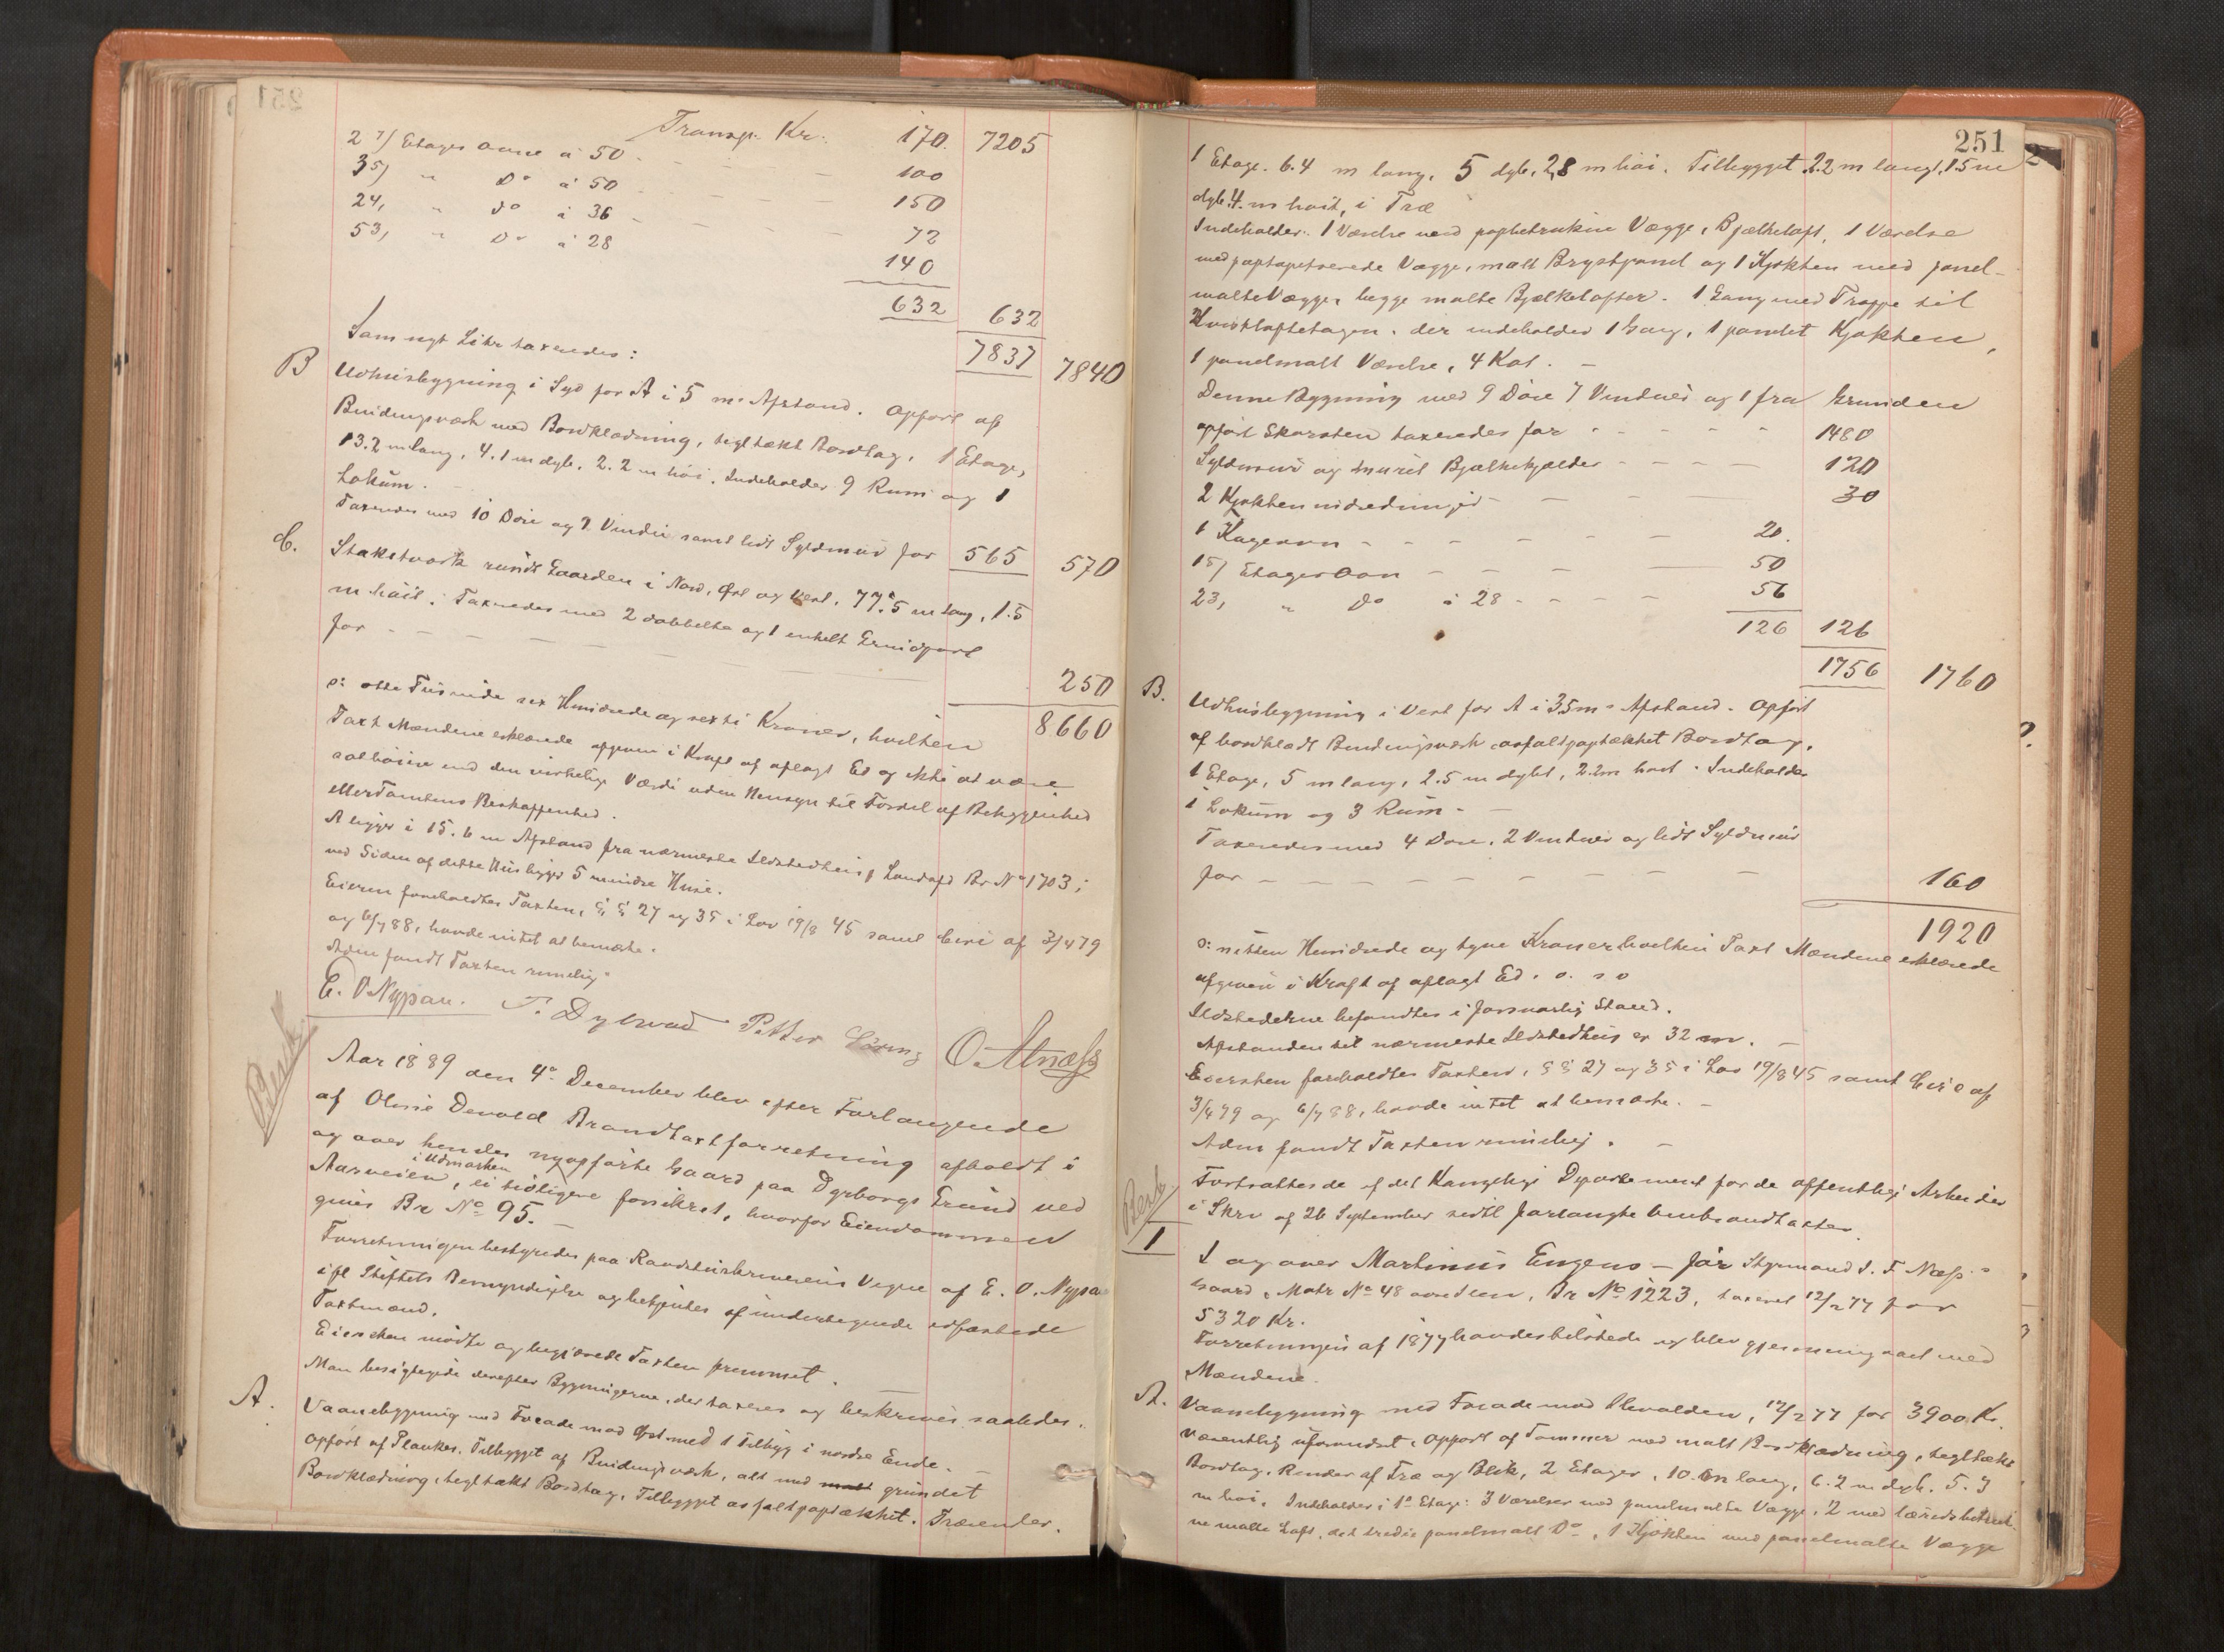 Transp. Kr. 170. 7205
2 7/ Etages Ovne à 50 - - - 100
3 5/ " Do à 50 - - - 150
2 4, " do à 36 - - - 72
5 3, " Do à 28 140
632 632
Som nyt Litr taxeredes: 7837 7840
B Udhusbygning i Syd for A i 5 m. Afstand. Opført af
Bindingsværk med Bordklædning, tegltækt Bordtag, 1 Etage,
13.2 m lang, 4.1 m dyb, 2.2 m høi. Indeholder 9 Rum og 1
Lokum.
Taxeredes med 10 Døre og 9 Vinduer samt lidt Syldmur for 565 570
C. Staketværk rundt Gaarden i Nord, Øst og Vest, 77.5 m lang, 1.5
m høit. Taxeredes med 2 dobbelte og 1 enkelt Grindport
for - - - - - 250
8660
o: otte Tusinde sex Hundrede og sexti Kroner, hvilken
Taxt Mændene erklærede afgiven i Kraft af aflagt Ed og ikke at være
sat høiere end den virkelige Værdi uden Hensyn til Fordel af Beliggenhed
eller Tomtens Beskaffenhed.
A ligger i 15.6 m Afstand fra nærmeste Ildstedhus, Landafd Br No 1703;
ved Siden af dette Hus ligger 5 mindre Huse.
Eieren foreholdtes Taxten, §§ 27 og 35 i Lov 19/8 45 samt Circ af 3/4 79
og 6/7 88, havde intet at bemærke.
Adm fandt Taxten rimelig.
E. O Nypan. T. Dybvad Petter Göring O. Alnæss
Besk.
Aar 1889 den 4de December blev efter Forlangende
af Oline Devold Brandtaxtforretning afholdt i
og over hendes nyopførte Gaard paa Dyrborgs Grund ved
i Udmarken
Aasveien, ei tidligere forsikret, hvorfor Eiendommen
gives Br No 95.
Forretningen bestyredes paa Raadstueskriverens Vegne af E. O. Nypan
ifl Stiftets Bemyndigelse og betjentes af undertegnede edfæstede
Taxtmænd.
Eiersken mødte og begjærede Taxten fremmet.
Man besigtigede derefter Bygningerne, der taxeres og beskrives saaledes.
A. Vaanebygning med Facade mod Øst med 1 Tilbyg i nordre Ende.
Opført af Planker. Tilbygget af Bindingsværk, alt med grundet
Bordklædning, tegltækt Bordtag, Tilbygget asfaltpaptækket. Trærender.
251
1 Etage. 6.4 m lang, 5 dyb, 2,8 m høi. Tilbygget 2.2 m langt, 1.5 m
dybt. 4. m høit, i Træ
Indeholder: 1 Værelse med papbetrukne Vægge, Bjælkeloft, 1 Værelse
med paptapetserede Vægge, malt Brystpanel og 1 Kjøkken med panel-
malte Vægge, begge malte Bjælkelofter. 1 Gang med Trappe til
Kvistloftetagen, der indeholder 1 Gang, 1 panelet Kjøkken,
1 panelmalt Værelse, 4 Kot. -
Denne Bygning med 9 Døre 7 Vinduer og 1 fra Grunden
opført Skorsten taxeredes for - - - - - 1480
Syldmur og muret Bjælkekjælder - - - - 120
2 Kjøkkenindredninger - - - 30
1 Kageovn - - - - - - 20.
1 5/ Etagesovn - - - - 50
2 3, " do à 28 - - - - 56
126 126
1756 1760
B. Udhusbygning i Vest for A i 3.5 m. Afstand. Opført
af bordklædt Bindingsværk, asfaltpaptækket Bordtag,
1 Etage, 5 m lang, 2.5 m dybt, 2.2 m høit. Indeholder
1 Lokum og 3 Rum. -
Taxeredes med 4 Døre, 2 Vinduer og lidt Syldmur
for - - - - - - - - 160
1920
o: nitten Hundrede og tyve Kroner hvilken Taxt Mændene erklærede
afgiven i Kraft af aflagt Ed. o. s o
Ildstederne befandtes i forsvarlig Stand.
Afstanden til nærmeste Ildstedhus er 32 m. -
Eiersken foreholdtes Taxten, §§ 27 og 35 i Lov 19/8 45 samt Circ af
3/4 79 og 6/7 88, havde intet at bemærke. -
Adm fandt Taxten rimelig. -
Besk.
Fortsattes de af det Kongelige Departement for de offentlige Arbeider
i Skriv af 26 September sidstl forlangte Ombrandtaxter.
1 I og over Martinus Engens - før Styrmand I. F. Næss's
Gaard, Matr No 48 , Br No 1223, taxeret 12/2 77 for
5320 Kr.
Forretningen af 1877 havdes tilstede og blev gjennemgaaet med
Mændene.
A. Vaanebygning med Facade mod Ilevolden, 12/2 77 for 3900 Kr.
væsentlig uforandret. Opført af Tømmer med malt Bordklædning, tegltækt
Bordtag. Render af Træ og Blik, 2 Etager, 10. m lang, 6.2 m dyb. 5.3
m høi. Indeholder i 1ste Etage: 3 Værelser med panelmalte Vægge, 2 med lærredsbetrukne
malte Loft, det tredie panelmalt Do, 1 Kjøkken med panelmalte Vægge